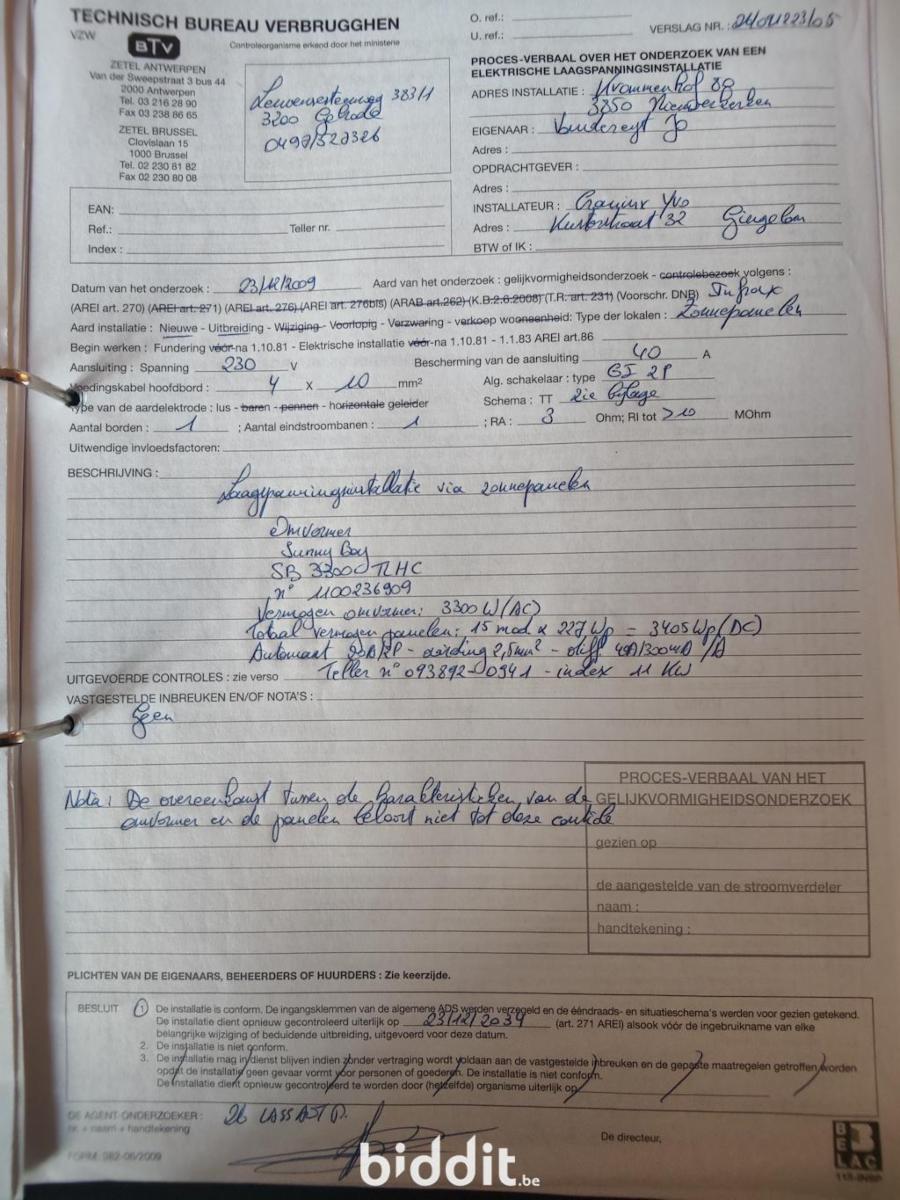 TECHNISCH BUREAU VERBRUGGHEN
VZW
BTV
Controleorganisme erkend door het ministerie
ZETEL ANTWERPEN
Van der Sweepstraat 3 bus 44
2000 Antwerpen
Tel. 03 216 28 90
Fax 03 238 86 65
ZETEL BRUSSEL
Clovislaan 15
1000 Brussel
Tel. 02 230 81 82
Fax 02 230 80 08
Leuvensesteenweg 383/1
3200 Gelrode
0497/527326
O. ref.:
U. ref.:
VERSLAG NR. : 24/091223/05
PROCES-VERBAAL OVER HET ONDERZOEK VAN EEN
ELEKTRISCHE LAAGSPANNINGSINSTALLATIE
ADRES INSTALLATIE : Krommenhof 8
3850 Nieuwerkerken
EIGENAAR : Jo
Adres :
OPDRACHTGEVER :
Adres :
INSTALLATEUR : Yvo
Adres : 32 Gingelom
BTW of IK :
EAN:
Ref.: Teller nr.
Index :
Datum van het onderzoek : 23/12/2009 Aard van het onderzoek : gelijkvormigheidsonderzoek - controlebezoek volgens :
(AREI art. 270) (AREI art. 271) (AREI art. 276) (AREI art. 276bis) (ARAB art.262) (K.B.2.6.2008) (T.R. art. 231) (Voorschr. DNB) Infrax
Aard installatie : Nieuwe - Uitbreiding - Wijziging - Voorlopig - Verzwaring - verkoop wooneenheid: Type der lokalen : Zonnepanelen
Begin werken : Fundering vóór-na 1.10.81 - Elektrische installatie vóór-na 1.10.81 - 1.1.83 AREI art.86
Aansluiting : Spanning 230 V Bescherming van de aansluiting 40 A
Voedingskabel hoofdbord : 4 X 10 mm² Alg. schakelaar : type 2P
Type van de aardelektrode : lus - baren - pennen - horizontale geleider Schema : TT zie bijlage
Aantal borden : 1 ; Aantal eindstroombanen : 1 ; RA : 3 Ohm; RI tot >10 MOhm
Uitwendige invloedsfactoren:
BESCHRIJVING :
Laagspanningsinstallatie via zonnepanelen
Omvormer
Sunny Boy
SB 3300 TLHC
n° 1100236909
Vermogen omvormer: 3300 W (AC)
Totaal vermogen panelen: 15 mod x 227 Wp = 3405 Wp (DC)
Automaat 20A/2P - aarding 2,5mm² - diff. 40A/300mA /A
UITGEVOERDE CONTROLES : zie verso Teller n° 093892-0941 - index 11 KW
VASTGESTELDE INBREUKEN EN/OF NOTA'S :
Geen
Nota : De overeenkomst tussen de karakteristieken van de
omvormer en de panelen behoort niet tot deze controle
PROCES-VERBAAL VAN HET
GELIJKVORMIGHEIDSONDERZOEK
gezien op
de aangestelde van de stroomverdeler
naam :
handtekening :
PLICHTEN VAN DE EIGENAARS, BEHEERDERS OF HUURDERS : Zie keerzijde.
BESLUIT 1 De installatie is conform. De ingangsklemmen van de algemene ADS werden verzegeld en de ééndraads- en situatieschema's werden voor gezien getekend.
De installatie dient opnieuw gecontroleerd uiterlijk op 23/12/2034 (art. 271 AREI) alsook vóór de ingebruikname van elke
belangrijke wijziging of beduidende uitbreiding, uitgevoerd voor deze datum.
2. De installatie is niet conform.
3. De installatie mag in dienst blijven indien zonder vertraging wordt voldaan aan de vastgestelde inbreuken en de gepaste maatregelen getroffen worden
opdat de installatie geen gevaar vormt voor personen of goederen. De installatie is niet conform.
De installatie dient opnieuw gecontroleerd te worden door (hetzelfde) organisme uiterlijk op
DE AGENT-ONDERZOEKER : 26 LASSAUT D.
nr. + naam + handtekening
De directeur,
FORM. 982-06/2009
BELAC
biddit.be